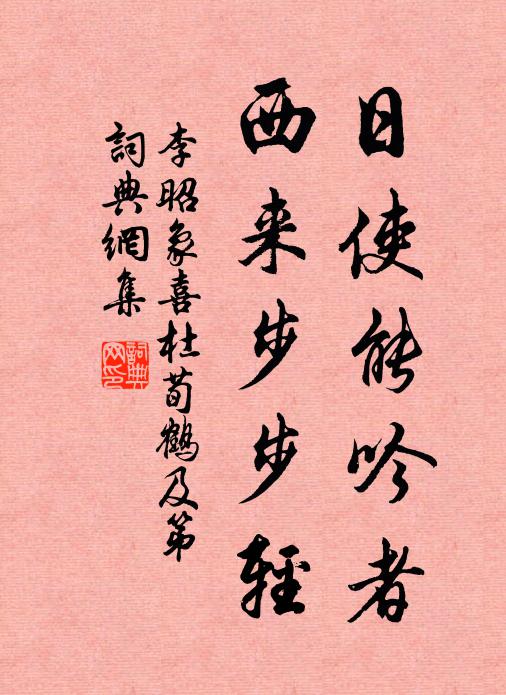 日使能吟者
西来步步輕
李昭象喜杜荀鶴及第
詞典網集
詞典
网印